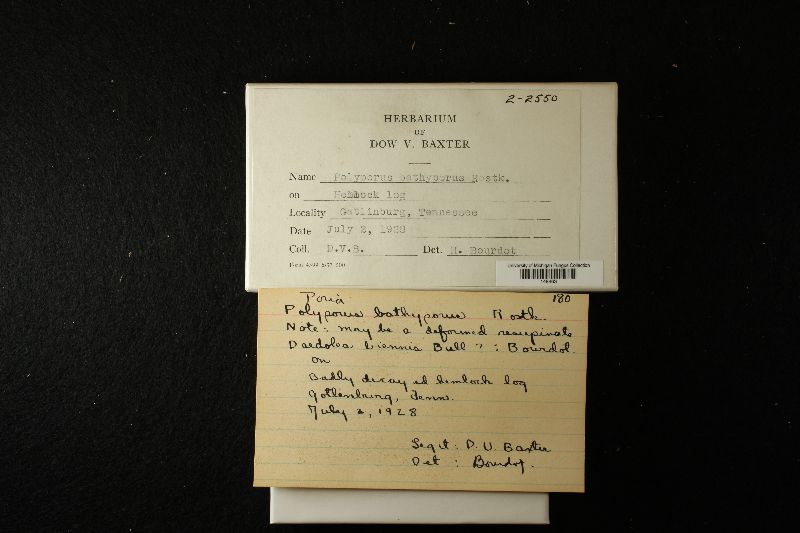 2-2550
HERBARIUM
OF
DOW V. BAXTER
Name Polyporus bathyporus Rostk.
on Hemlock log
Locality Gatlinburg, Tennessee
Date July 2, 1928
Coll. D.V.B. Det. H. Bourdot
University of Michigan Fungus Collection
Poria 180
Polyporus bathyporus Rostk.
Note: may be a deformed resupinate
Daedalea biennis Bull ? : Bourdot.
on
Badly decayed hemlock log
Gatlinburg, Tenn.
July 2, 1928
Legit: D. V. Baxter
Det : Bourdot.